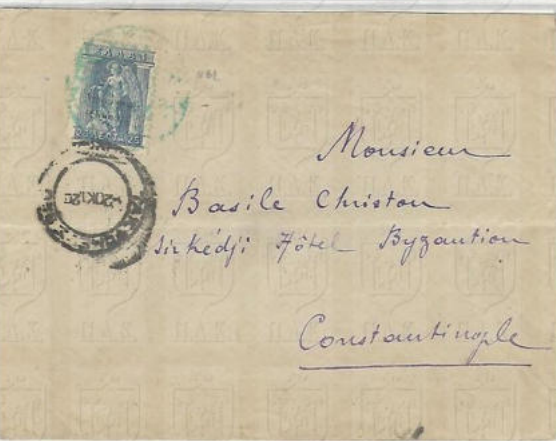 ΕΛΛΑΣ
Monsieur
Basile Christou
Sirkédji Hôtel Byzantion
Constantinople